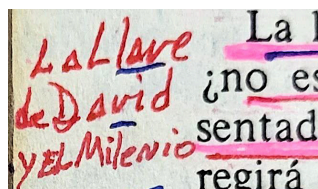 La Llave
de David
y EL Milenio
La
¿no es
sentad
regirá